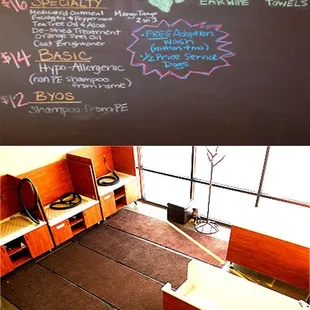 $16 SPECIALTY
Medicated Oatmeal
Eucalyptus & Peppermint
Tea Tree Oil & Aloe
De-Shed Treatment
Orange Peel Oil
Coat Brightener
Mango Tango
2 in 1
EAR WIPE
TOWELS
*FREE Adoption
Wash
(within 1 mo)
*1/2 Price Service
Dogs
$14 BASIC
Hypo-Allergenic
(non PE shampoo
from name)
$12 BYOS
Shampoo from PE